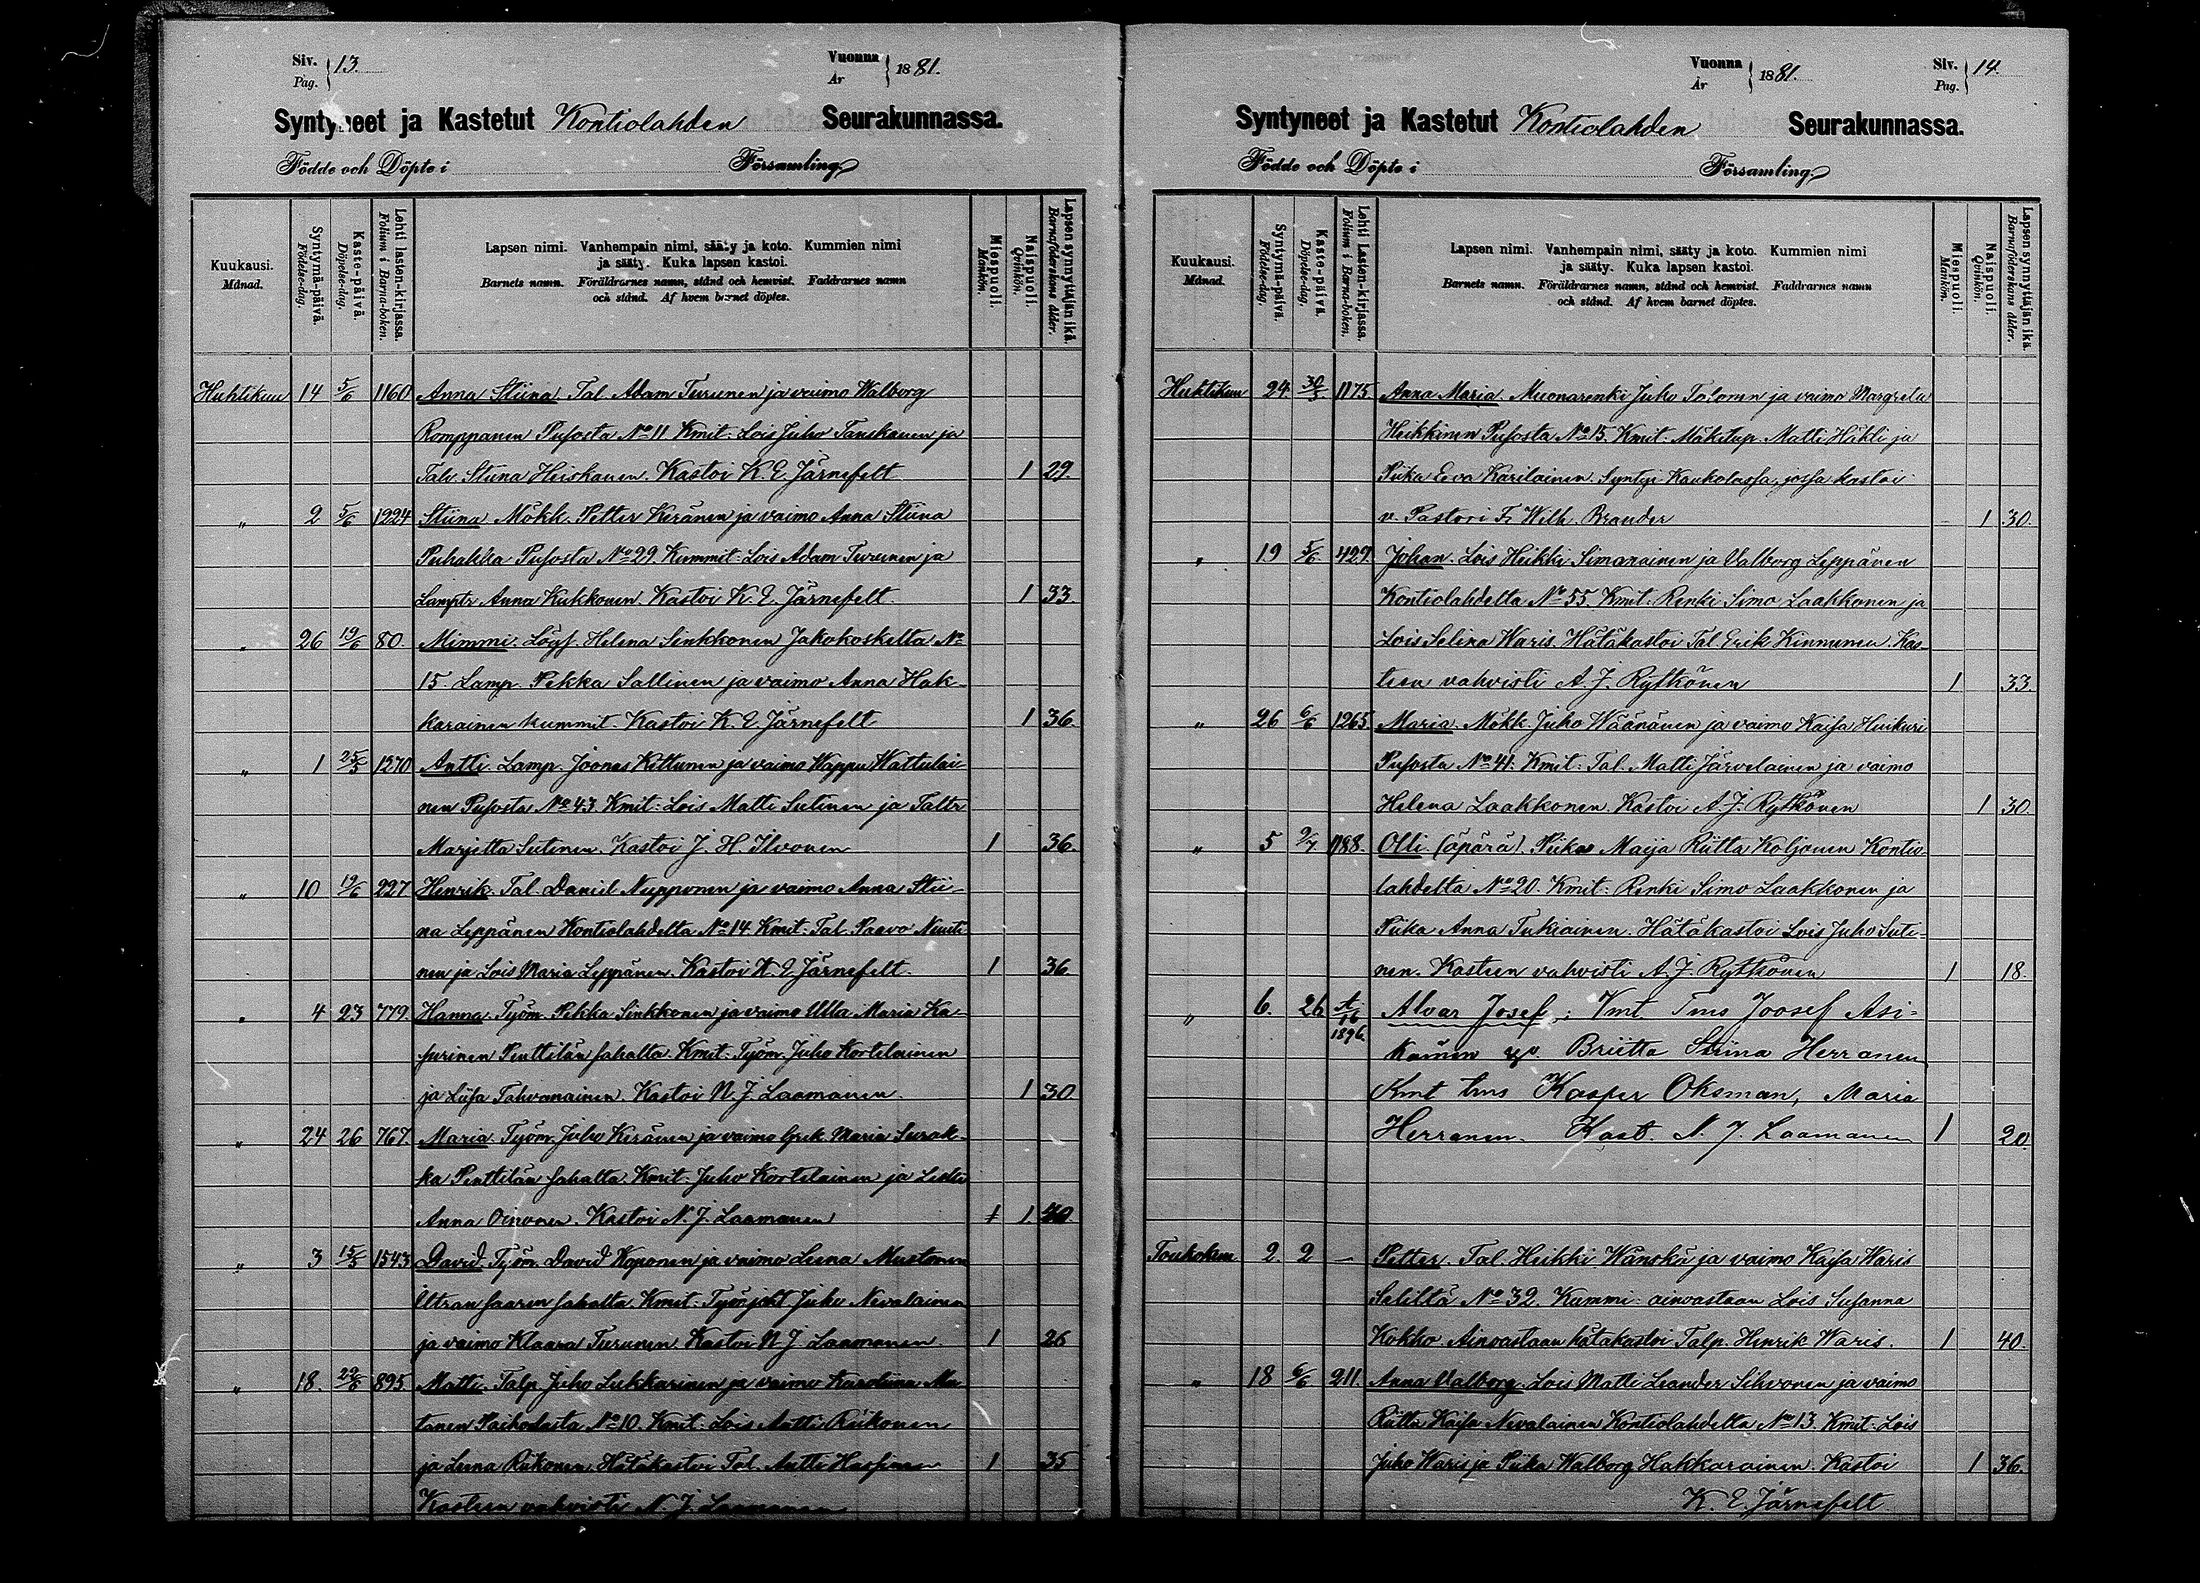 Siv. Pag. 13. Vuonna År 1881.
Syntyneet ja Kastetut Kontiolahden Seurakunnassa.
Födde och Döpte i Församling
Kuukausi. Månad.
Syntymä-päivä. Födelse-dag.
Kaste-päivä. Döpelse-dag.
Lehti lasten-kirjassa. Folium i Barna-boken.
Lapsen nimi. Vanhempain nimi, sääty ja koto. Kummien nimi
ja sääty. Kuka lapsen kastoi.
Barnets namn. Föräldrarnes namn, stånd och hemvist. Faddrarnes namn
och stånd. Af hvem barnet döptes.
Miespuoli. Mankön.
Naispuoli. Qvinkön.
Lapsen synnyttäjän ikä. Barnaföderskans ålder.
Huhtikuu 14 5/6 1160 Anna Stiina Tal. Adam Turunen ja vaimo Walborg
Romppanen Pusosta No 11 Kmit: Lois Juho Tanskanen ja
Talv. Stiina Heiskanen. Kastoi K. E. Järnefelt 1 29.
" 2 5/6 1224 Stiina Mökk. Petter Keränen ja vaimo Anna Stiina
Puhakka Pusosta No 29. Kummit: Lois Adam Turunen ja
Lamptr Anna Kukkonen. Kastoi K. E. Järnefelt. 1 33.
" 26 19/6 80. Mimmi. Lögs. Helena Sinkkonen Jakokoskelta No
15. Lamp. Pekka Sallinen ja vaimo Anna Hak-
karainen kummit. Kastoi K. E. Järnefelt 1 36.
" 1 25/5 1270 Antti. Lamp. Joonas Kettunen ja vaimo Wappu Wattulai-
nen Pusosta No 43. Kmit: Lois Matti Sutinen ja Taltr
Marjetta Sutinen. Kastoi J. H. Ilvonen 1 36.
" 10 19/6 227 Henrik. Tal. Daniel Nupponen ja vaimo Anna Stii-
na Leppänen Kontiolahdelta No 14. Kmit: Tal. Paavo Nuuti-
nen ja Lois Maria Leppänen. Kastoi K. E. Järnefelt. 1 36
" 4 23 779. Hanna Työm. Pekka Sinkkonen ja vaimo Ulla Maria Ka-
surinen Penttilän sahalta. Kmit: Työm. Juho Kortelainen
ja Liisa Tahvanainen. Kastoi N. J. Laamanen. 1 30
" 24 26 767. Maria. Työm. Juho Keränen ja vaimo Grek. Maria Surak-
ka Penttilän sahalta. Kmit: Juho Kortelainen ja Leski
Anna Oinonen. Kastoi N. J. Laamanen 1 1 40
" 3 15/5 1543 David. Työm. David Koponen ja vaimo Leena Mustonen
Utran saaren sahalta. Kmit: Työnjoht Juho Nevalainen
ja vaimo Klaara Turunen. Kastoi N. J. Laamanen. 1 26
" 18. 22/6 895. Matti. Talp. Juho Lukkarinen ja vaimo Karolina Mu-
tanen Paiholasta No 10. Kmit: Lois Antti Riikonen
ja Leena Riikonen. Hätäkastoi Tal. Antti Hassinen 1 35
Kasteen vahvisti N. J. Laamanen
Vuonna År 1881. Siv. Pag. 14.
Syntyneet ja Kastetut Kontiolahden Seurakunnassa.
Födde och Döpte i Församling
Kuukausi. Månad.
Syntymä-päivä. Födelse-dag.
Kaste-päivä. Döpelse-dag.
Lehti Lasten-kirjassa. Folium i Barna-boken.
Lapsen nimi. Vanhempain nimi, sääty ja koto. Kummien nimi
ja sääty. Kuka lapsen kastoi.
Barnets namn. Föräldrarnes namn, stånd och hemvist. Faddrarnes namn
och stånd. Af hvem barnet döptes.
Miespuoli. Mankön.
Naispuoli. Qvinkön.
Lapsen synnyttäjän ikä. Barnaföderskans ålder.
Huhtikuu 24 30/5 1175 Anna Maria. Muonarenki Juho Tolonen ja vaimo Margreta
Heikkinen Pusosta No 15. Kmit: Mäkitup. Matti Häkli ja
Piika Eeva Karilainen. Syntyi Kaukolassa, jossa kastoi
v. Pastori F. Wilh. Brander 1 30.
" 19 5/6. 427. Johan. Lois Heikki Simanainen ja Valborg Leppänen
Kontiolahdelta No 55. Kmit: Renki Simo Laakkonen ja
Lois Selina Waris. Hätäkastoi Tal. Erik Kinnunen. Kas-
teen vahvisti A. J. Rytkönen 1 33.
" 26 6/6 1265. Maria. Mökk. Juho Wäänänen ja vaimo Kaisa Hiukuri
Pusosta No 41. Kmit: Tal. Matti Järvelainen ja vaimo
Helena Laakkonen. Kastoi A. J. Rytkönen 1 30.
" 5 9/7 1188. Olli. (äpärä). Piika Maija Riitta Koljonen Kontio-
lahdelta No 20. Kmit: Renki Simo Laakkonen ja
Piika Anna Tukiainen. Hätäkastoi Lois Juho Suti-
nen. Kasteen vahvisti A. J. Rytkönen 1 18.
" 6. 26 1896. Alvar Josef; Vmt Tms Joosef Asi-
kainen Briitta Stina Herranen
Kmt tms Kasper Oksman, Maria
Herranen. Kast. N. J. Laamanen 1 20
Toukokuu 2. 2 — Petter. Tal. Heikki Wänskä ja vaimo Kaisa Waris
Seliltä No 32. Kummi: ainoastaan Lois Susanna
Kokko. Ainoastaan hätäkastoi Talp. Hinrik Waris. 1 40.
" 18 6/6 211. Anna Valborg. Lois Matti Leander Sihvonen ja vaimo
Riitta Kaisa Nevalainen Kontiolahdelta No 13. Kmit: Lois
Juho Waris ja Piika Walborg Hakkarainen. Kastoi 1 36.
K. E. Järnefelt